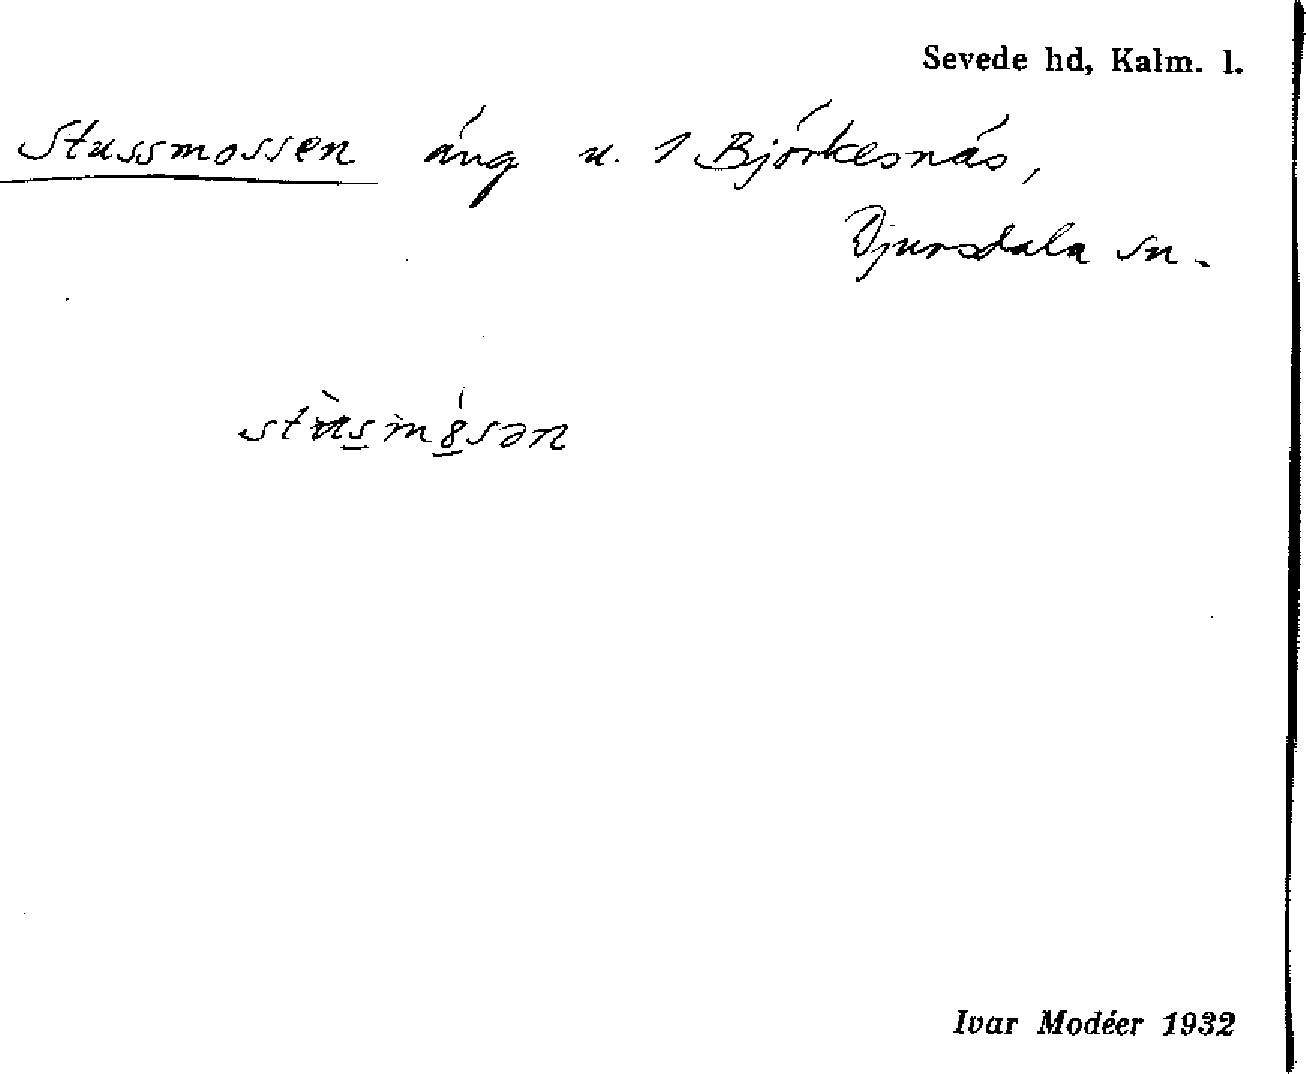 Sevede hd, Kalm. l.
Stussmossen äng u. 1 Björkesnäs,
Djursdala sn.
stùsmósən
Ivar Modéer 1932